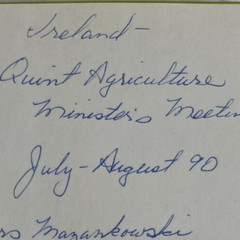 Ireland -
Quint Agriculture
Ministers Meetin
July - August 90
rs Mazankowski